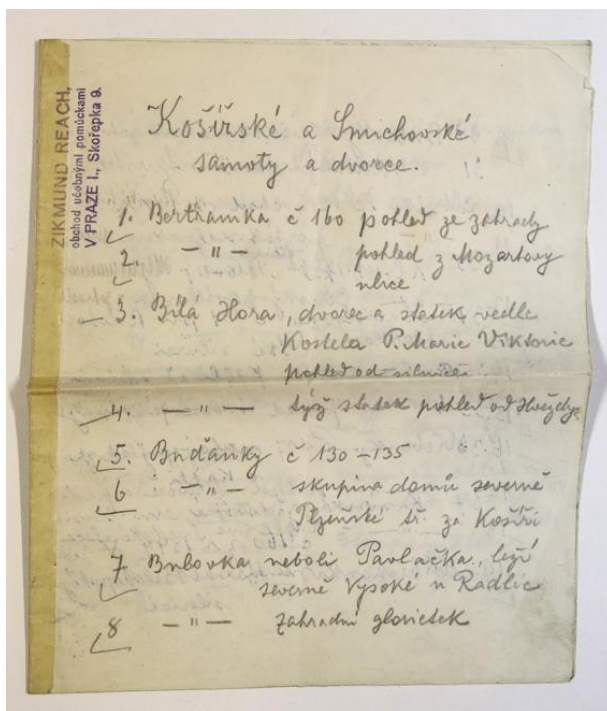 ZIKMUND REACH,
obchod učebnými pomůckami
V PRAZE I., Skořepka 9.
Košířské a Smichovské
samoty a dvorce.
1. Bertramka č 160 pohled ze zahrady
2. — " — pohled z Mozartovy
ulice
3. Bílá Hora, dvorec a statek vedle
Kostela P. Marie Viktorie
pohled od silnice
4. — " — týž statek pohled od Hvězdy
5. Buďanky č 130–135
6 — " — skupina domů severně
Plzeňské tř. za Košíři
7 Bulovka neboli Pavlačka, leží
severně Vysoké u Radlic
8 — " — zahradní glorietek